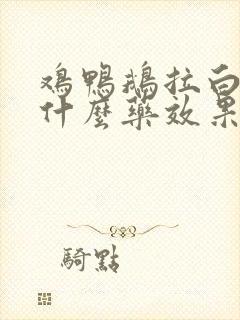 鸡鸭鹅拉白
什麼藥效果
騎點